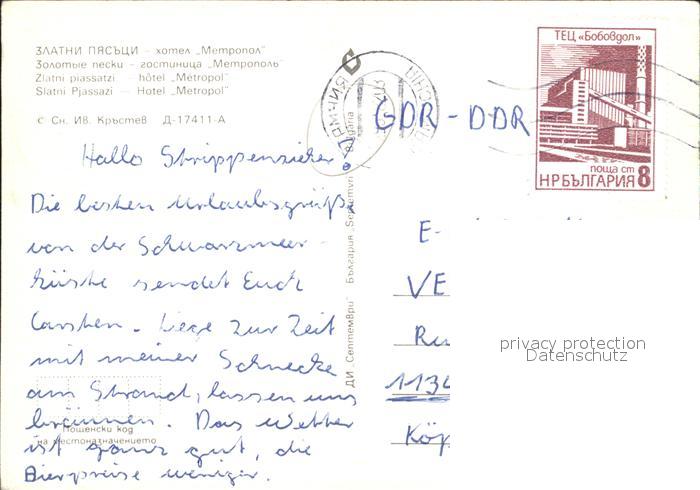 ЗЛАТНИ ПЯСЪЦИ – хотел „Метропол"
Золотые пески – гостиница „Метрополь"
Zlatni piassatzi – hôtel „Métropol"
Slatni Pjassazi – Hotel „Metropol"
с Сн. Ив. Кръстев Д-17411-А
Hallo Strippenzieher
Die besten Urlaubsgrüße
von der Schwarzmeer-
küste sendet Euch
Carsten. Liege zur Zeit
mit meiner Schnecke
am Strand, lassen uns
bräunen. Das Wetter
ist ganz gut, die
Bierpreise weniger.
Пощенски код
на местоназначението
ДИ „Септември" България
ТЕЦ «Бобовдол»
поща ст
НРБЪЛГАРИЯ 8
GDR - DDR
E-
VE
Ru
1134
Köp
privacy protection
Datenschutz